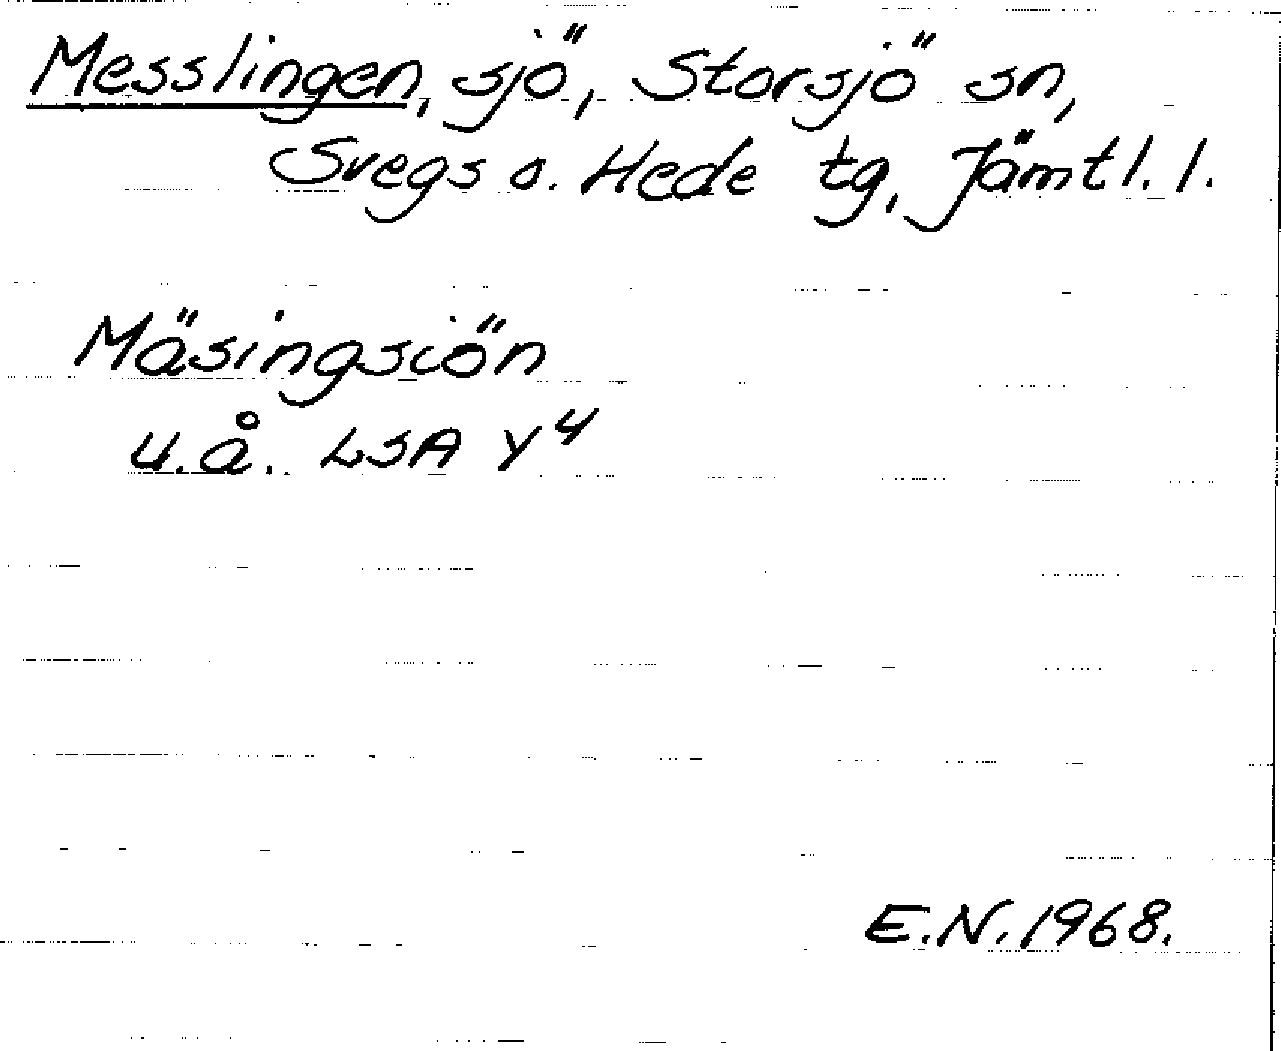 Messlingen, sjö, Storsjö sn,
Svegs o. Hede tg, Jämtl. l.
Mäsingsiön
u.å. LSA Y4
E.N. 1968.